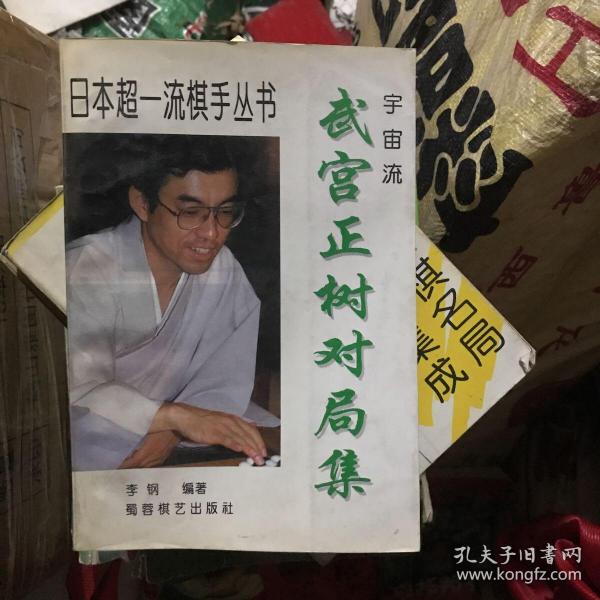 日本超一流棋手丛书
宇宙流
武宫正树对局集
李钢 编著
蜀蓉棋艺出版社
棋名局
集成
孔夫子旧书网
www.kongfz.com